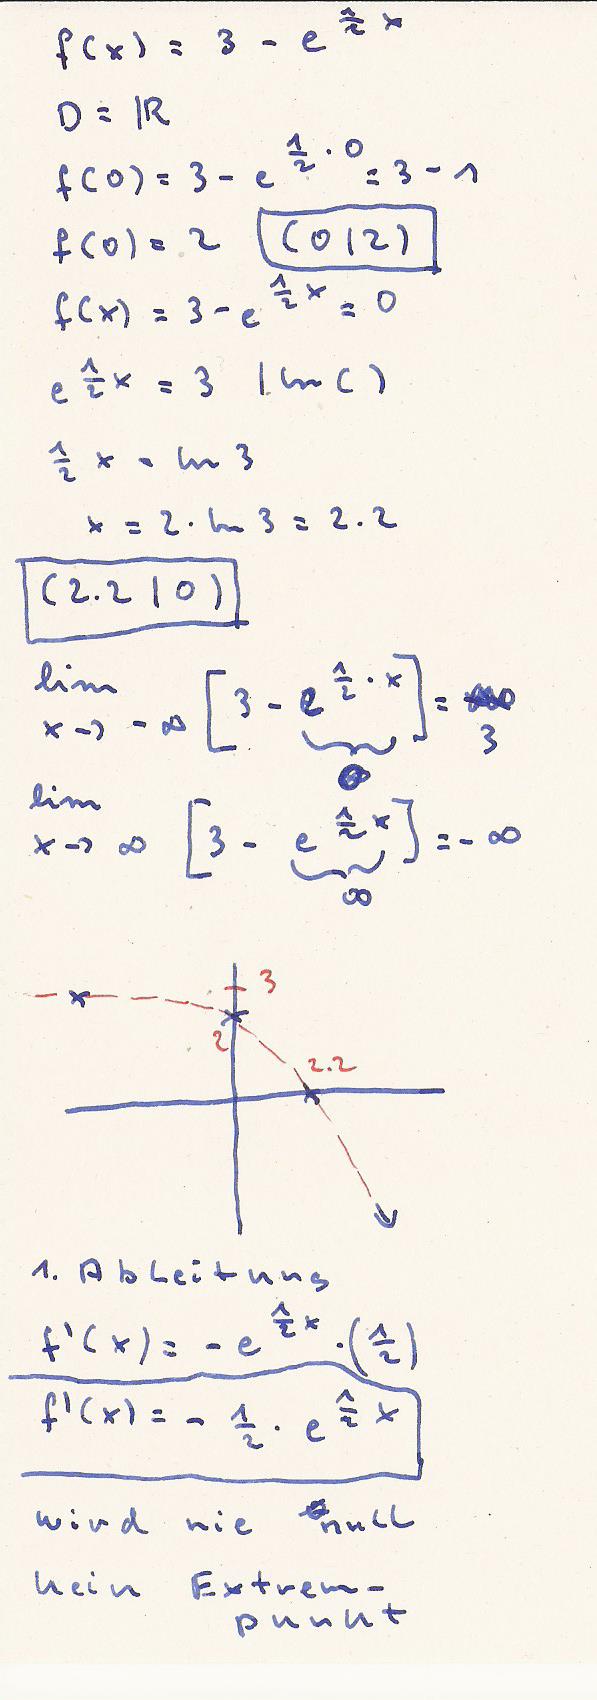 f(x) = 3 - e^(1/2 x)
D = ℝ
f(0) = 3 - e^(1/2 · 0) = 3 - 1
f(0) = 2 (0|2)
f(x) = 3 - e^(1/2 x) = 0
e^(1/2 x) = 3 | ln( )
1/2 x = ln 3
x = 2 · ln 3 = 2.2
(2.2|0)
lim x→ -∞ [3 - e^(1/2 · x)] = 3
0
lim x→ ∞ [3 - e^(1/2 x)] = -∞
∞
3
2
2.2
1. Ableitung
f'(x) = -e^(1/2 x) · (1/2)
f'(x) = - 1/2 · e^(1/2 x)
wird nie null
kein Extrem-
punkt